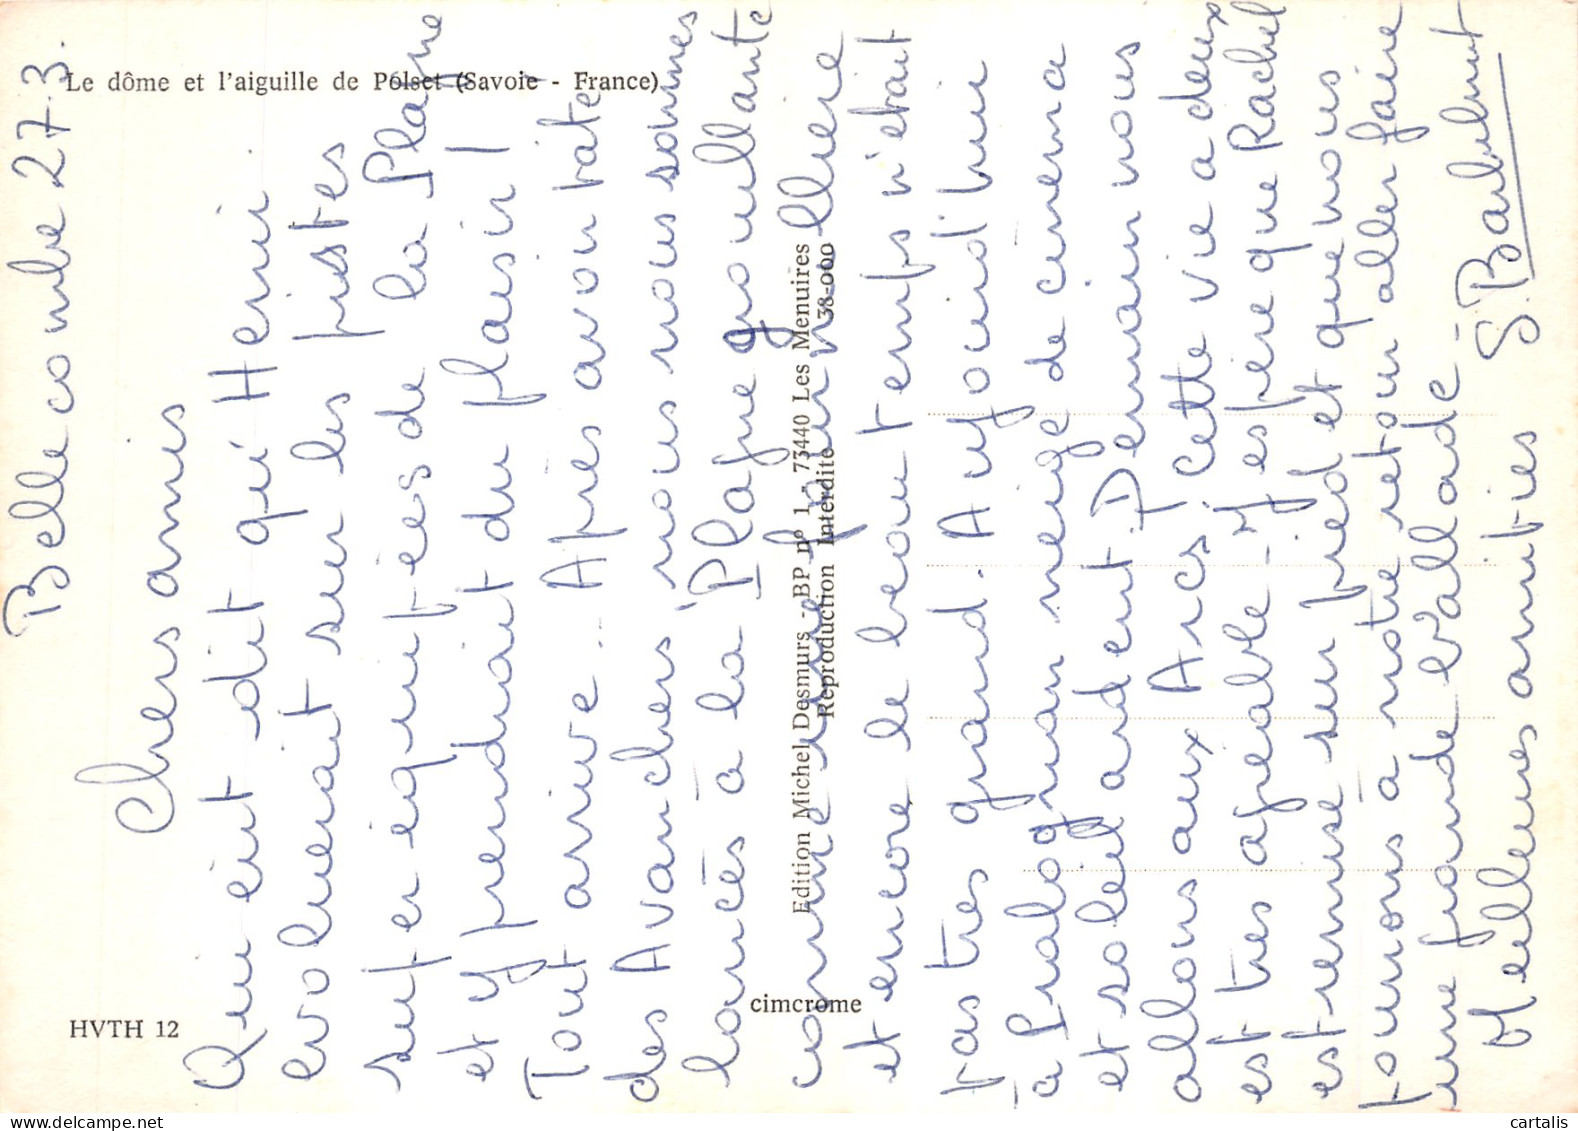 Le dôme et l'aiguille de Pólset (Savoie - France)
Belle combe 27 3.
Chers amis
Qui eut dit qu'Henri
evoluerait sur les pistes
super équipées de la Plagne
et y prendrait du plaisir !
Tout arrive.. Apres avoir raté
des Avanchers nous nous sommes
lancés à la Plagne grouillante
comme une fourmillière
et encore le beau temps n'etait
pas tres grand. Aujourd'hui
à Pralognan neige de cinema
et soleil ardent. Demain nous
allons aux Arcs, cette vie a deux
est tres agreable - J'espere que Rachel
est remise sur pied et que nous
pourrons à notre retour aller faire
une grande ballade -
Meilleures amitiés S. Barbelmut
Edition Michel Desmurs - BP nº 1 - 73440 Les Menuires
Reproduction Interdite 38-000
cimcrome
HVTH 12
cartalis